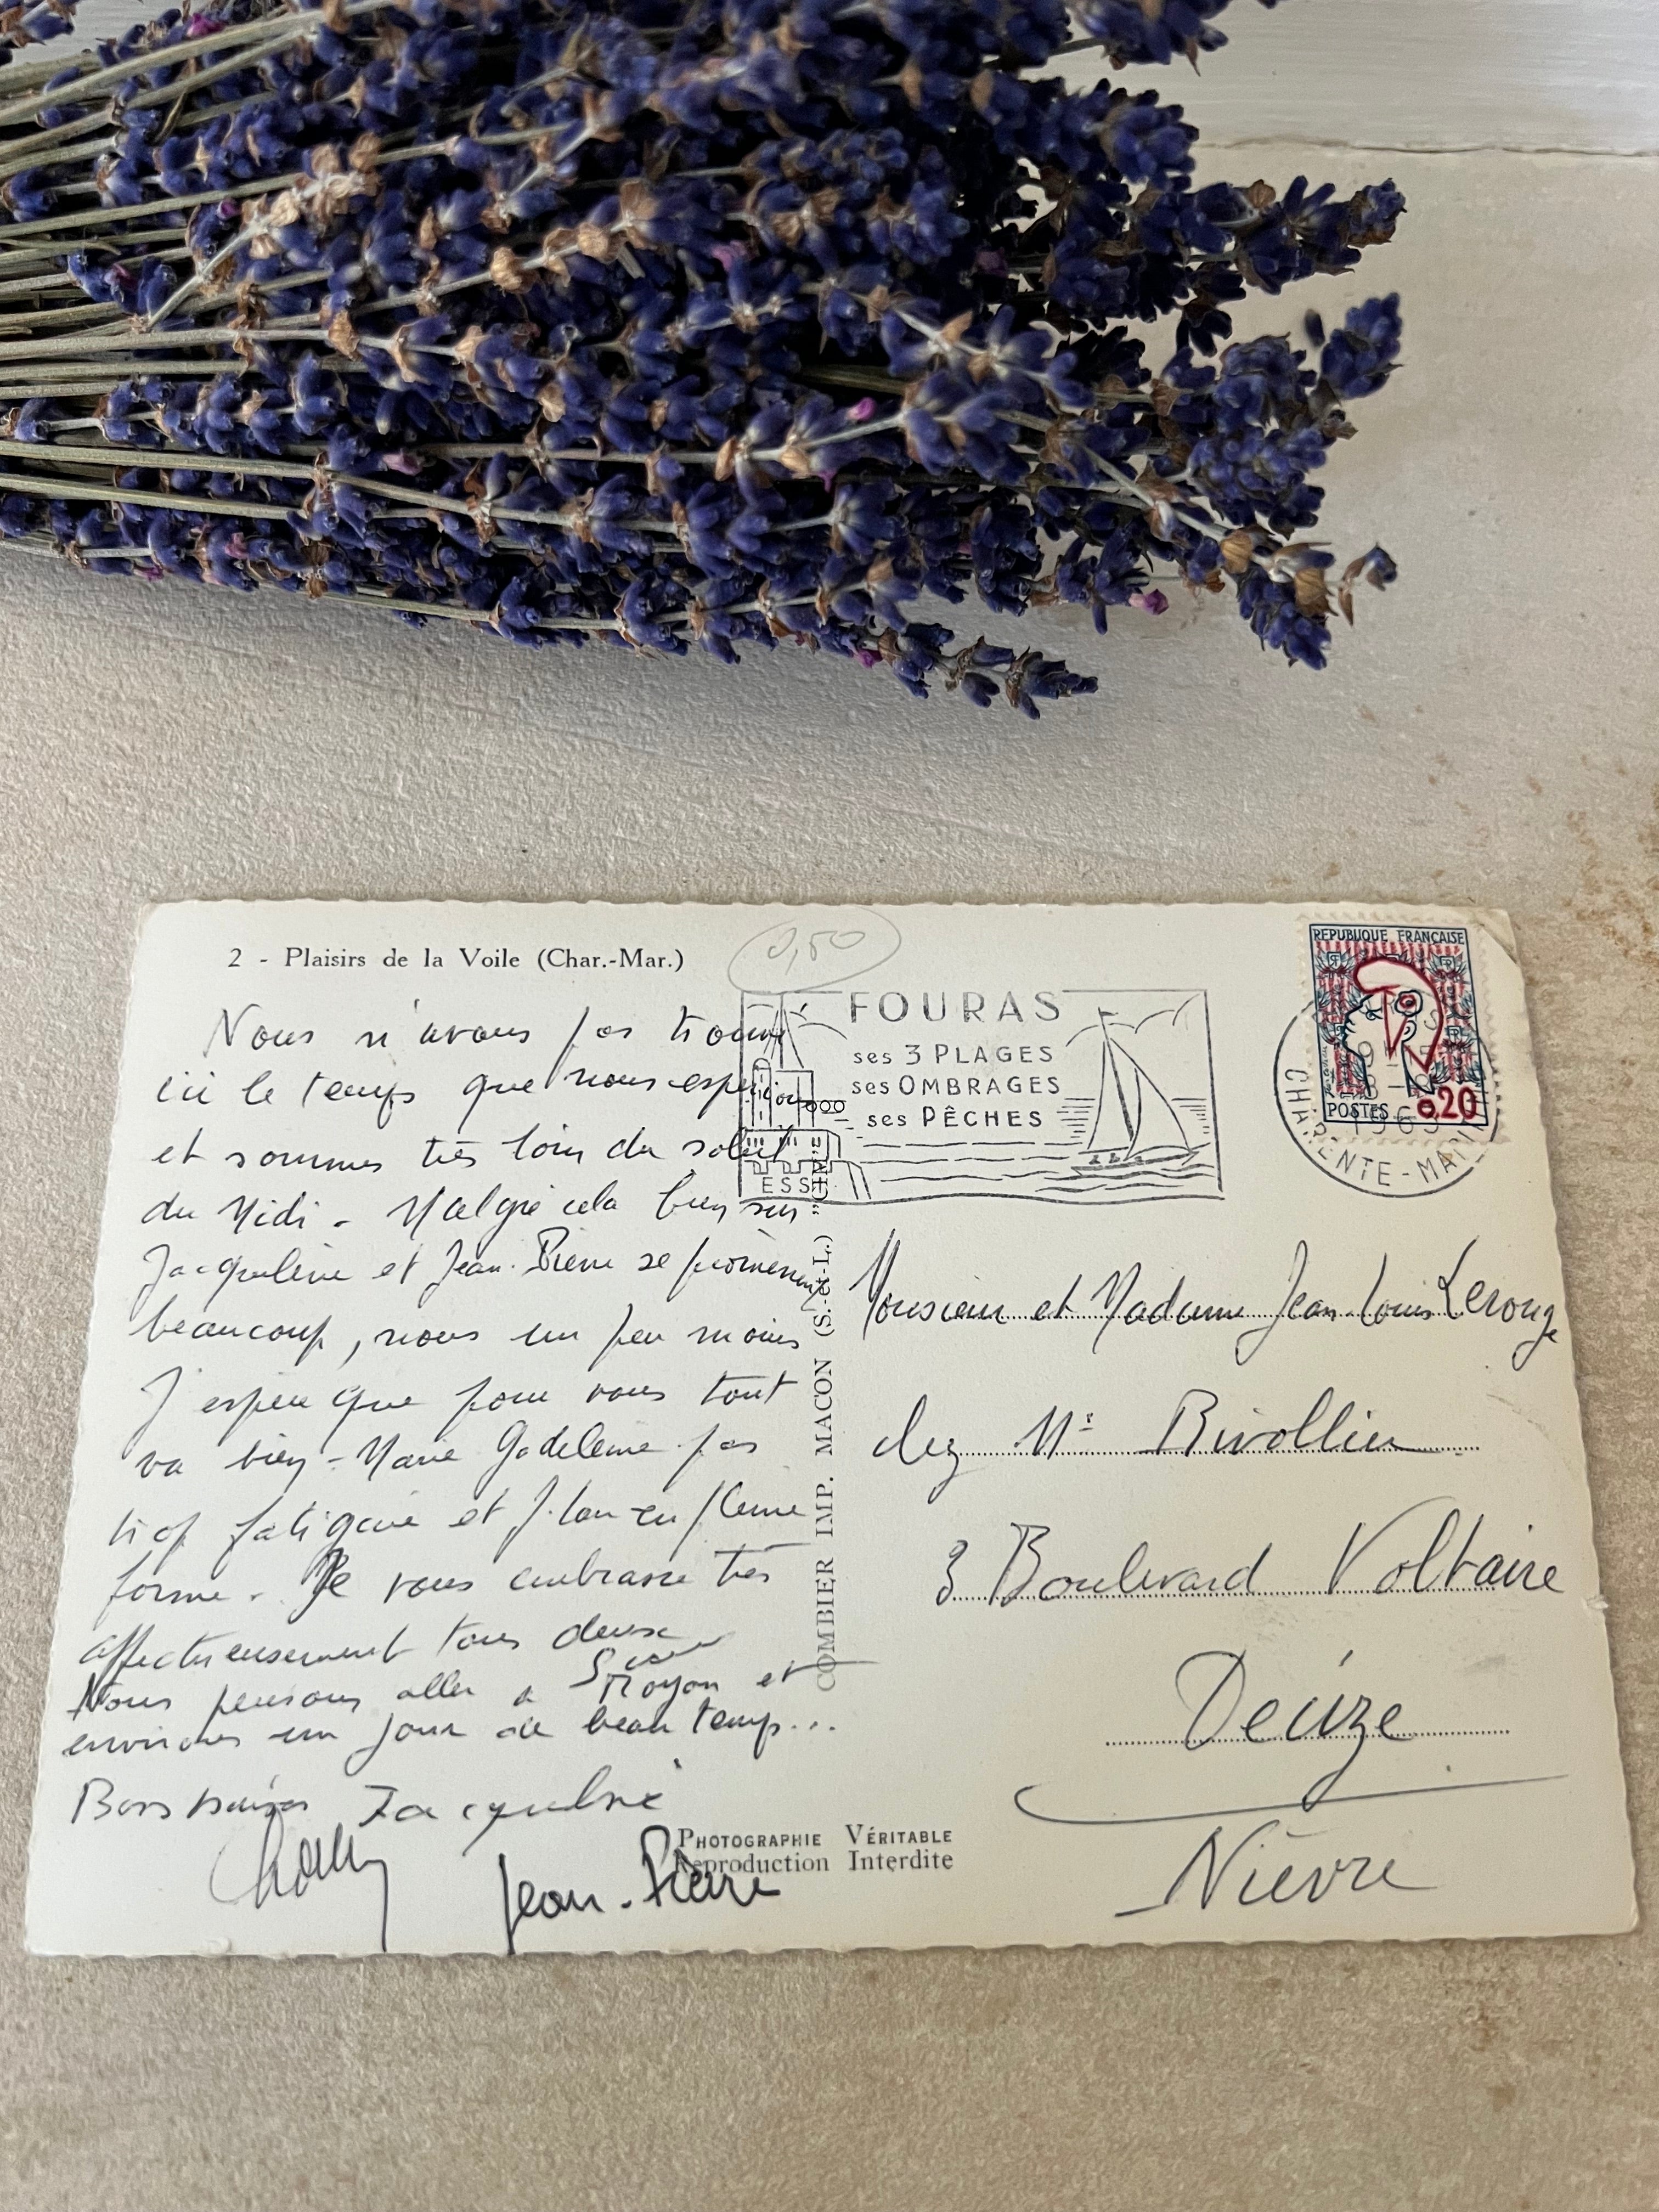 2 - Plaisirs de la Voile (Char.-Mar.)
0,50
Nous n'avons pas trouvé
ici le temps que nous espérions
et sommes très loin du soleil
du Midi - Malgré cela bien sûr
Jacqueline et Jean-Pierre se promènent
beaucoup, nous un peu moins
J'espère que pour vous tout
va bien - Marie Madeleine pas
trop fatiguée et J. Lou en pleine
forme - Je vous embrasse très
affectueusement tous deux
Nous pensons aller à Royan et
environs un jour de beau temp...
Bons baisers Jacqueline
Jean-Pierre
FOURAS
ses 3 PLAGES
ses OMBRAGES
ses PÊCHES
REPUBLIQUE FRANÇAISE
POSTES 0,20
CHARENTE-MARITIME
COMBIER IMP. MACON (S.-et-L.) "CIM"
Monsieur et Madame Jean-Louis Lerouge
chez Mr Rivollier
3 Boulevard Voltaire
Decize
Nièvre
PHOTOGRAPHIE VÉRITABLE
Reproduction Interdite